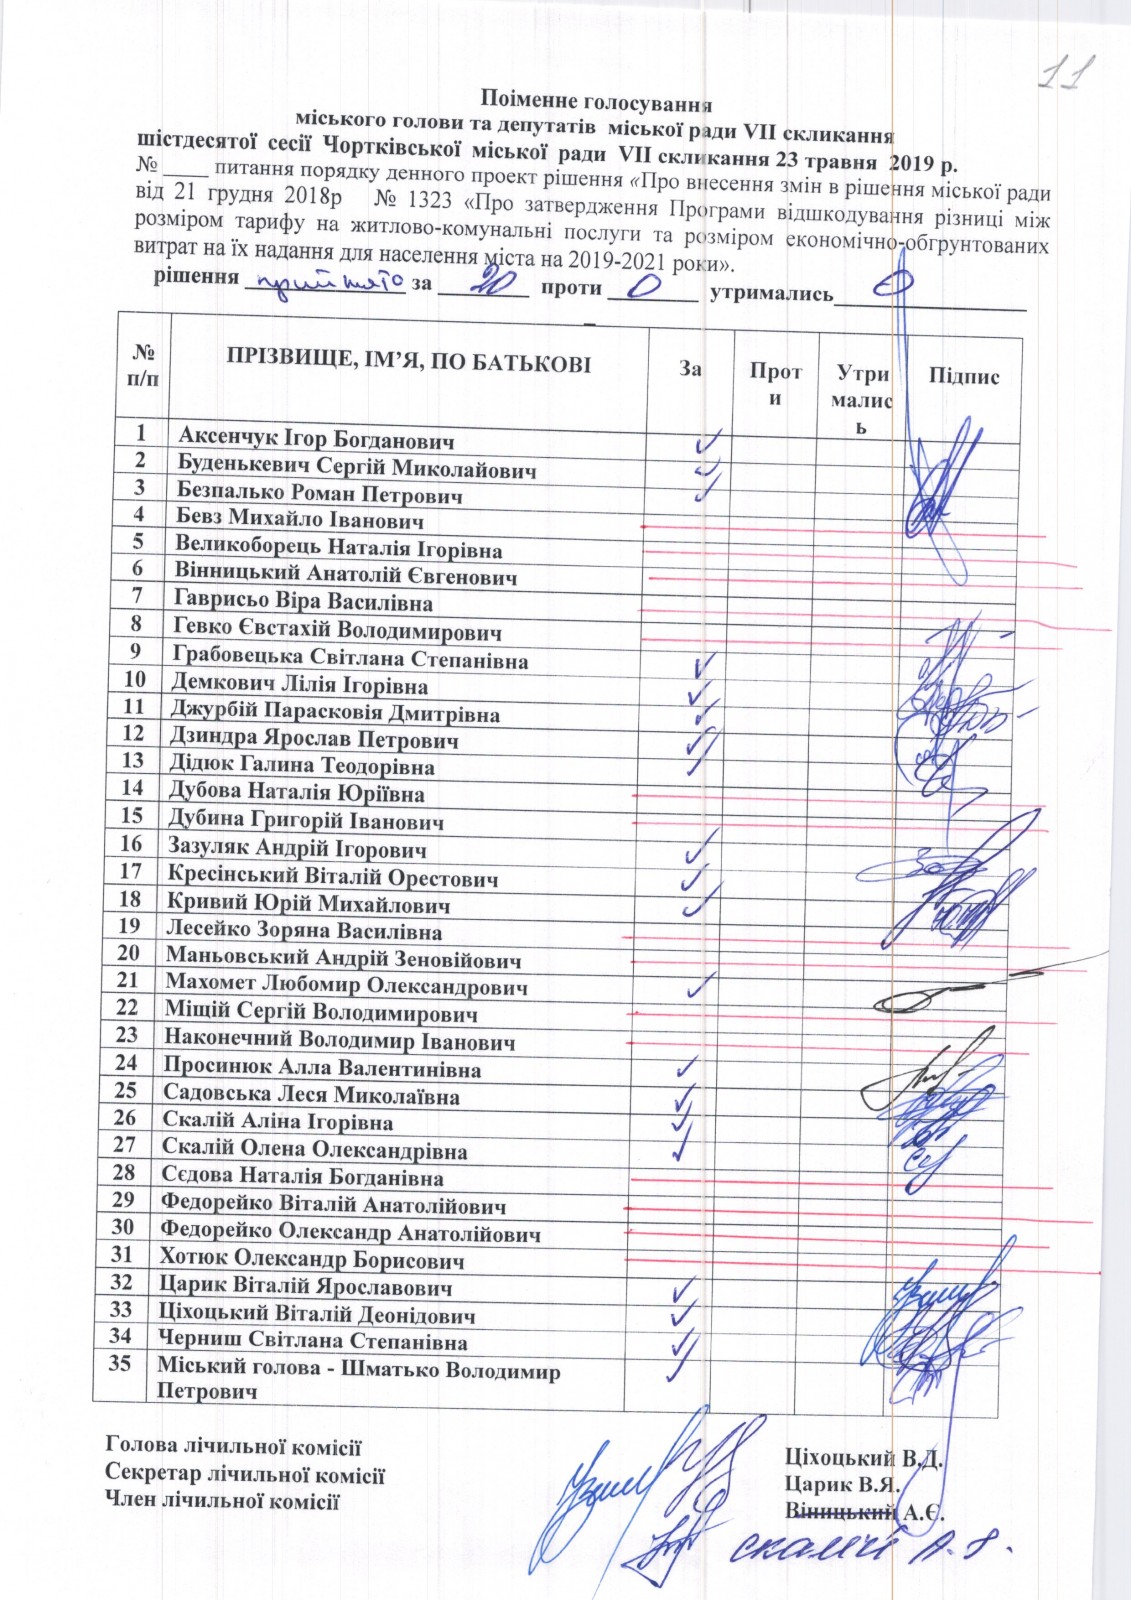 11
Поіменне голосування
міського голови та депутатів міської ради VII скликання
шістдесятої сесії Чортківської міської ради VII скликання 23 травня 2019 р.
№ ____ питання порядку денного проект рішення «Про внесення змін в рішення міської ради
від 21 грудня 2018р № 1323 «Про затвердження Програми відшкодування різниці між
розміром тарифу на житлово-комунальні послуги та розміром економічно-обгрунтованих
витрат на їх надання для населення міста на 2019-2021 роки».
рішення прийнято за 20 проти 0 утримались 0
№ п/п ПРІЗВИЩЕ, ІМ’Я, ПО БАТЬКОВІ За Проти Утрималис ь Підпис
1 Аксенчук Ігор Богданович ✓
2 Буденькевич Сергій Миколайович ✓
3 Безпалько Роман Петрович ✓
4 Бевз Михайло Іванович
5 Великоборець Наталія Ігорівна
6 Вінницький Анатолій Євгенович
7 Гаврисьо Віра Василівна
8 Гевко Євстахій Володимирович
9 Грабовецька Світлана Степанівна ✓
10 Демкович Лілія Ігорівна ✓
11 Джурбій Парасковія Дмитрівна ✓
12 Дзиндра Ярослав Петрович ✓
13 Дідюк Галина Теодорівна ✓
14 Дубова Наталія Юріївна
15 Дубина Григорій Іванович
16 Зазуляк Андрій Ігорович ✓
17 Кресінський Віталій Орестович ✓
18 Кривий Юрій Михайлович ✓
19 Лесейко Зоряна Василівна
20 Маньовський Андрій Зеновійович
21 Махомет Любомир Олександрович ✓
22 Міщій Сергій Володимирович
23 Наконечний Володимир Іванович
24 Просинюк Алла Валентинівна ✓
25 Садовська Леся Миколаївна ✓
26 Скалій Аліна Ігорівна ✓
27 Скалій Олена Олександрівна ✓
28 Сєдова Наталія Богданівна
29 Федорейко Віталій Анатолійович
30 Федорейко Олександр Анатолійович
31 Хотюк Олександр Борисович
32 Царик Віталій Ярославович ✓
33 Ціхоцький Віталій Деонідович ✓
34 Черниш Світлана Степанівна ✓
35 Міський голова - Шматько Володимир ✓
Петрович
Голова лічильної комісії Ціхоцький В.Д.
Секретар лічильної комісії Царик В.Я.
Член лічильної комісії Віницький А.Є.
скалій А. І.